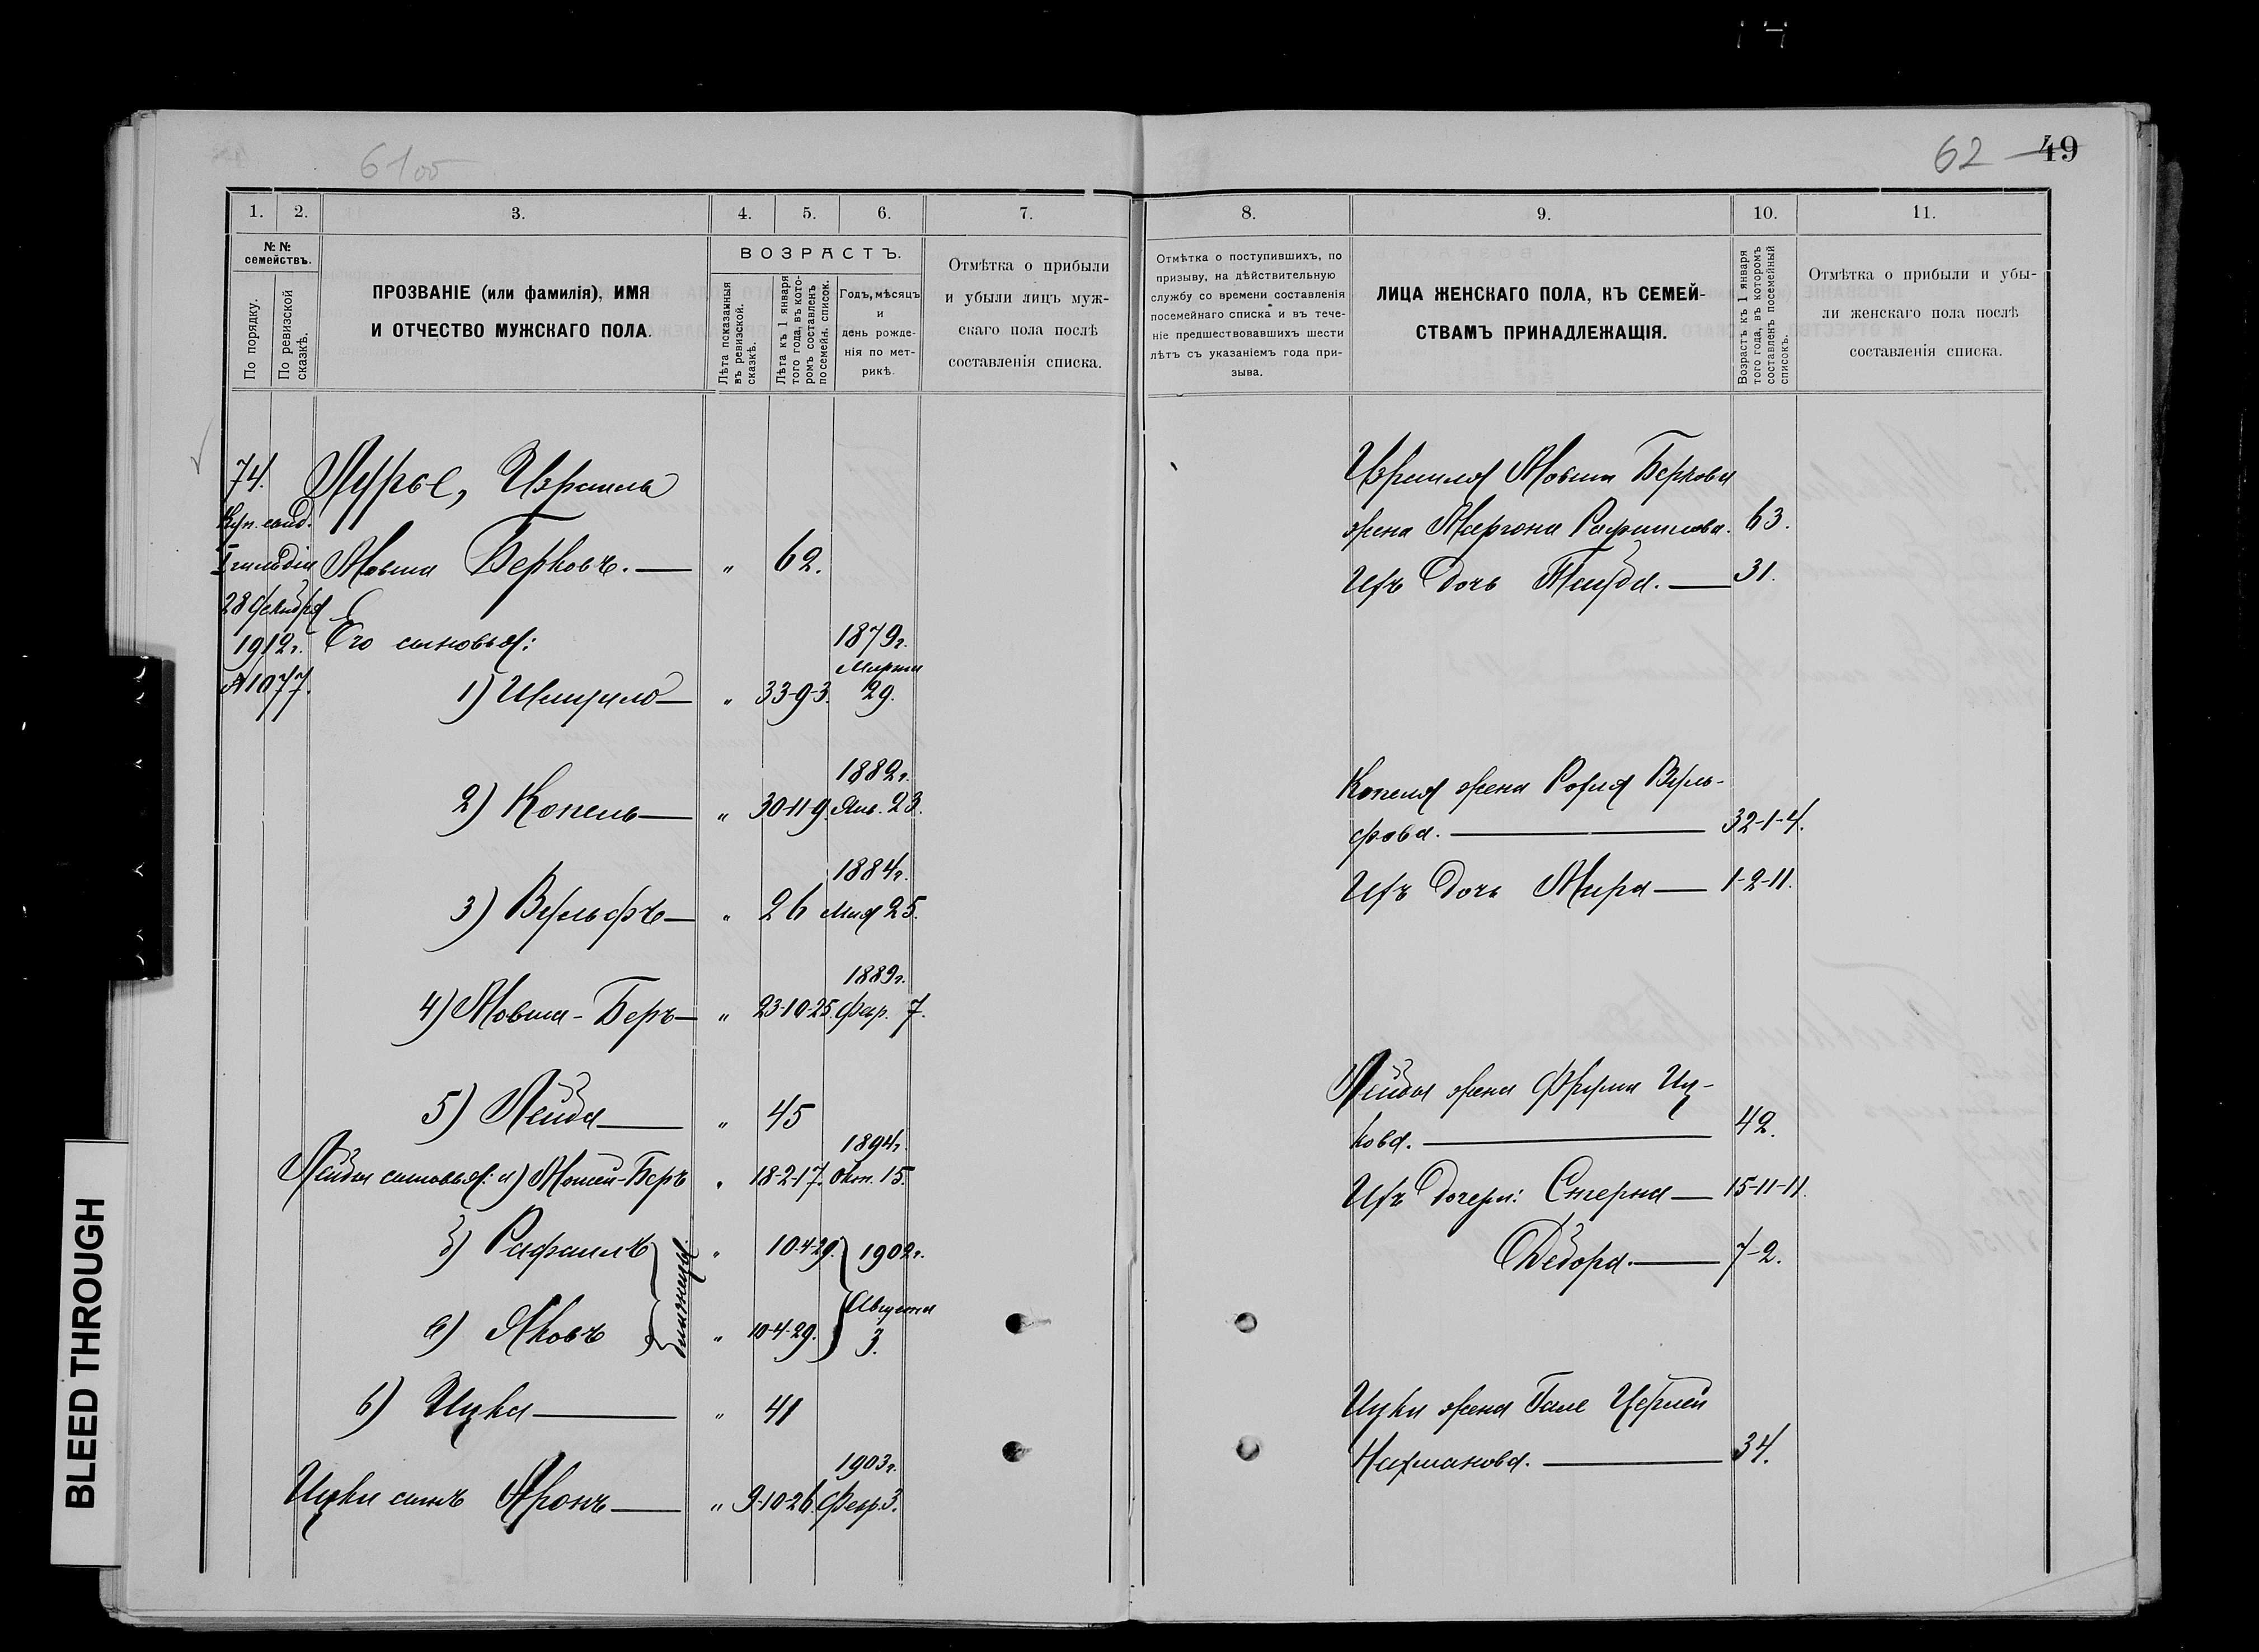 14
61об
62 49
1. 2. 3. 4. 5. 6. 7.
8. 9. 10. 11.
№№ семействъ.
По порядку.
По ревизской сказкѣ.
ПРОЗВАНІЕ (или фамилія), ИМЯ
И ОТЧЕСТВО МУЖСКАГО ПОЛА.
ВОЗРАСТЪ.
Лѣта показанныя
въ ревизской.
сказкѣ.
Лѣта къ 1 января
того года, въ кото-
ромъ составленъ
посемейн. список.
Годъ, мѣсяцъ
и
день рожде-
нія по мет-
рикѣ.
Отмѣтка о прибыли
и убыли лицъ муж-
скаго пола послѣ
составленія списка.
Отмѣтка о поступившихъ, по
призыву, на дѣйствительную
службу со времени составленія
посемейнаго списка и въ тече-
ніе предшествовавшихъ шести
лѣтъ съ указаніемъ года при-
зыва.
ЛИЦА ЖЕНСКАГО ПОЛА, КЪ СЕМЕЙ-
СТВАМЪ ПРИНАДЛЕЖАЩІЯ.
Возрастъ къ 1 января
того года, въ которомъ
составленъ посемейный
списокъ.
Отмѣтка о прибыли и убы-
ли женскаго пола послѣ
составленія списка.
74.
Куп. свид.
I гильдіи
28 декабря
1912 г.
№ 1077.
Лурье, Израиль
Мовша Берковъ. — „ 62.
Его сыновья:
1879 г.
Марта
1) — „ 33-9-3. 29.
1882 г.
2) Копель — „ 30-11-9. Янв. 23.
1884 г.
3) Вульфъ — „ 26 Мая 25.
1889 г.
4) Мовша-Беръ — „ 23-10-25. Фер. 7.
5) Лейба — „ 45
1894 г.
Лейбы сыновья: а) Мошей-Беръ „ 18-2-17. Окт. 15.
б) Рафаилъ „ 10-4-29. 1902 г.
близнецы.
в) Яковъ „ 10-4-29. Августа 3.
6) Ицка — „ 41
1903 г.
Ицки сынъ Аронъ — „ 9-10-26. Февр. 3.
Израиля Мовши Беркова
жена Рафаилова. 63.
Ихъ дочь — 31.
Копеля жена Вуль-
фова. — 32-1-4.
Ихъ дочь Мира — 1-2-11.
Лейбы жена Фрума Иц-
кова. — 42.
Ихъ дочери: Стерна — 15-11-11.
Дебора. — 7-2.
Ицки жена
Нахманова. — 34.
BLEED THROUGH